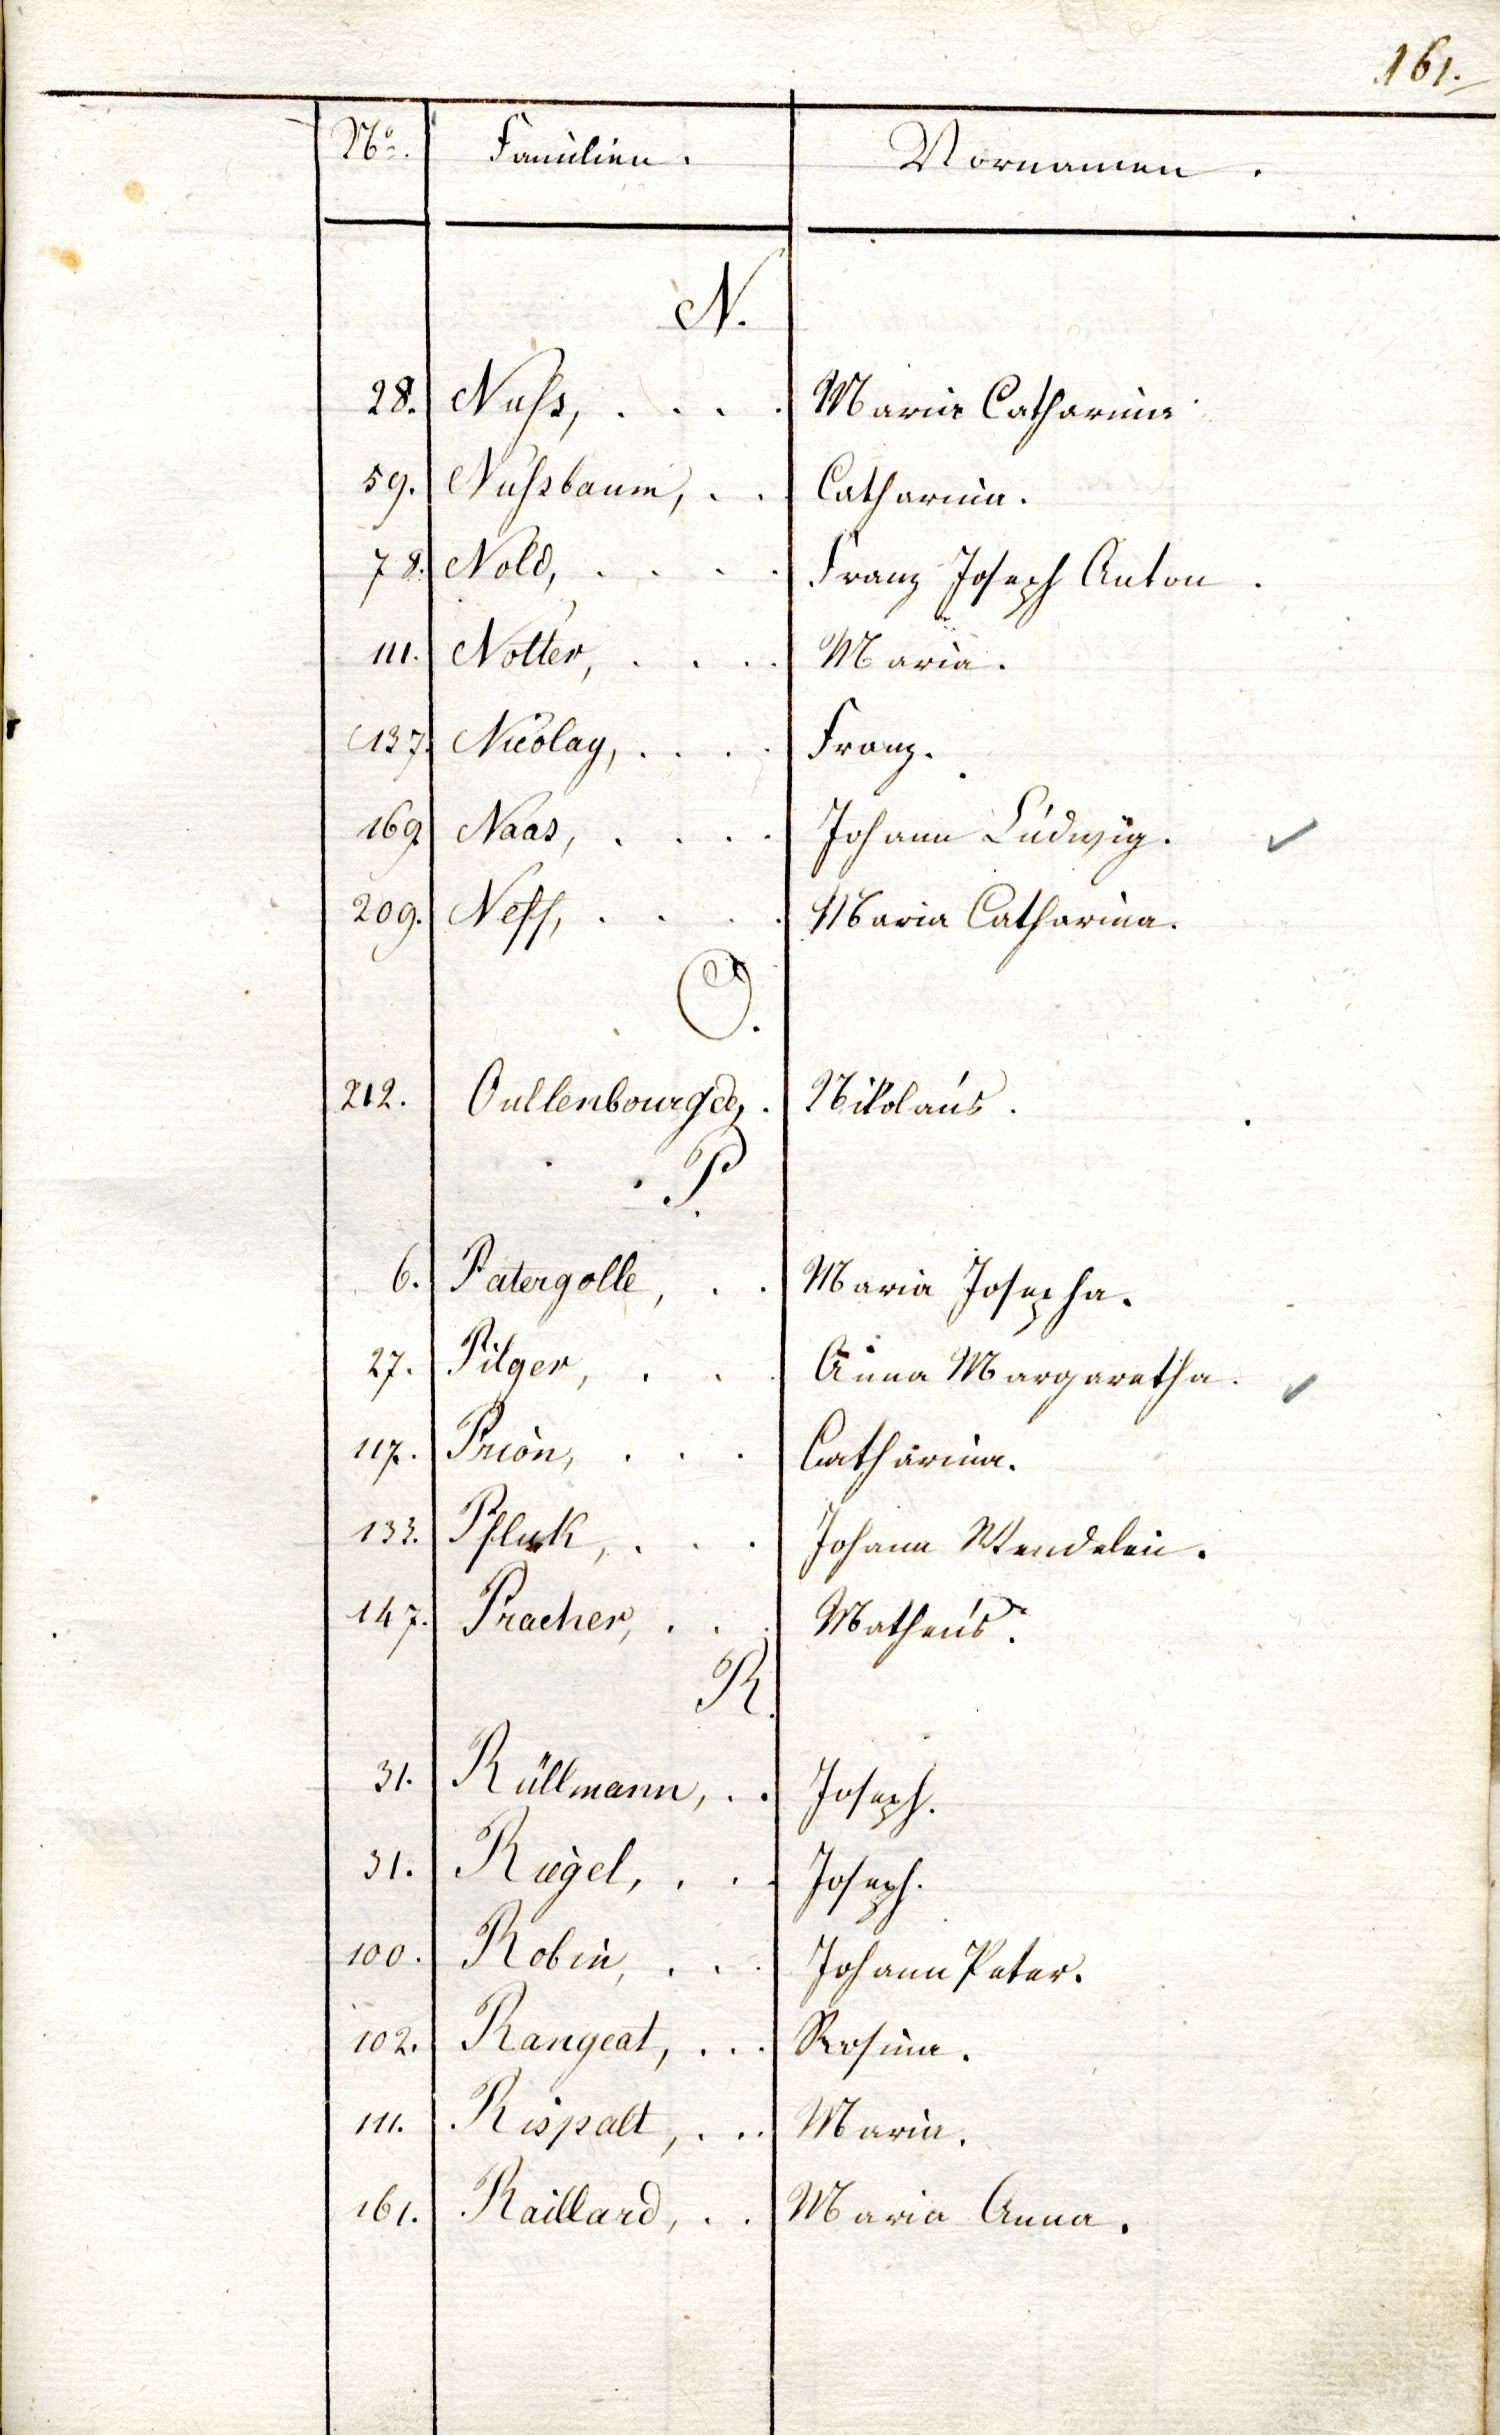 161.
No. Familien. Vornamen.
N.
28. Nuſs, . . . . Maria Catharina
59. Nuſsbaum, . . Catharina.
78. Nold, . . . . Franz Joseph Anton.
111. Notter, . . . . Maria.
137. Nicolay, . . . . Franz.
169. Naas, . . . . Johann Ludwig. ✓
209. Neff, . . . . Maria Catharina.
O.
212. Oullenbourg de, . Nikolaus.
P.
6. Patergolle, . . Maria Josepha.
27. Pilger, . . . Anna Margaretha. ✓
117. Prion, . . . Catharina.
133. Pfluk, . . . Johann Wendelin.
147. Pracher, . . . Matheus.
R.
31. Rüllmann, . . Joseph.
31. Riegel, . . . Joseph.
100. Robin, . . . Johann Peter.
102. Rangeat, . . . Rosina.
111. Rispalt, . . . Maria.
161. Raillard, . . Maria Anna.